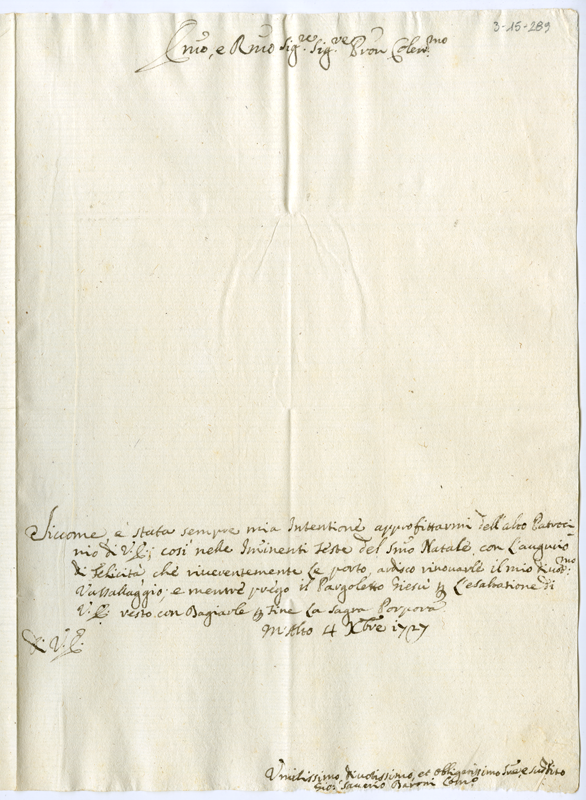 3-15-289
Emo, e Rmo Sig.re Sig.re Pron Colen.mo
Siccome, è stata sempre mia Intentione approfittarmi dell'alto Patroci-
nio di V.E; così nelle Imminenti feste del Smo Natale, con l'augurio
di felicità che riverentemente Le porto, ardisco rinovarle il mio divot.mo
Vassallaggio, e mentre priego il Pargoletto Giesù p l'esaltatione di
V.E. resto con Bagiarle p fine La Sagra Porpora
M. Alto 4 Xbre 1727
Di V.E.
Umilissimo, divotissimo, et obligatissimo Sre, e suddito
Gio: Saverio Baroni